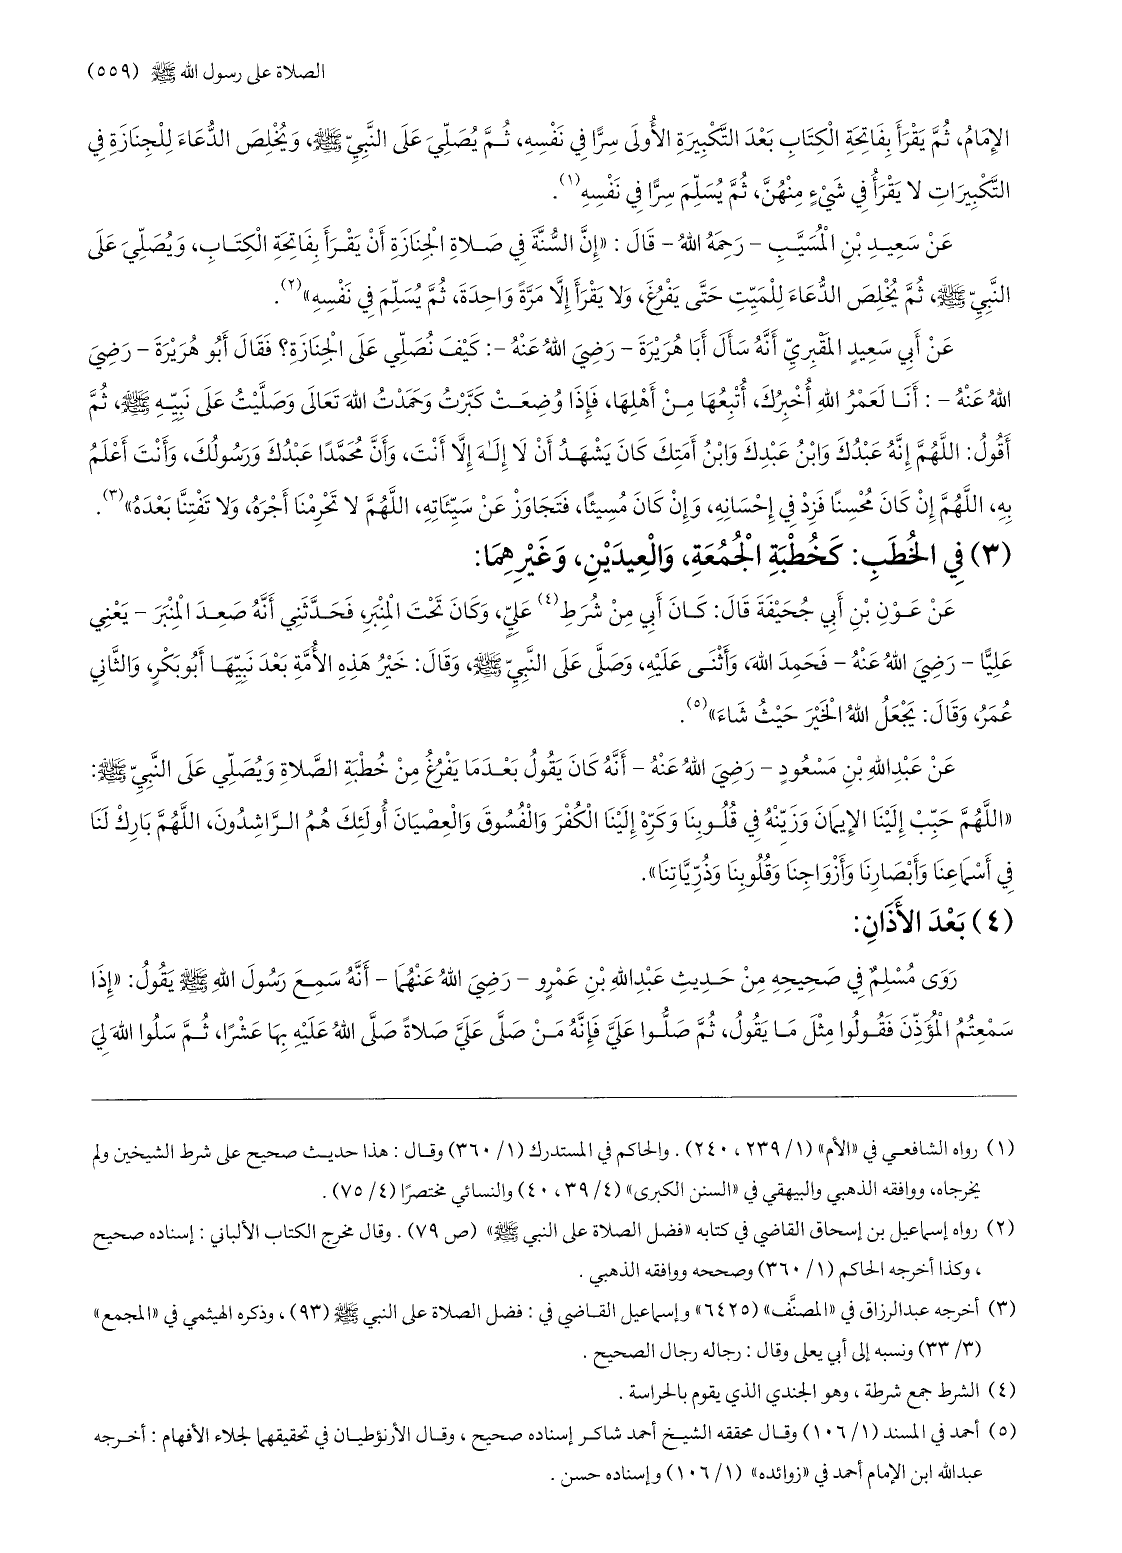 الصلاة على رسول الله ﷺ (٥٥٩)
الإِمَامُ، ثُمَّ يَقْرَأَ بِفَاتِحَةِ الْكِتَابِ بَعْدَ التَّكْبِيرَةِ الأُولَى سِرًّا فِي نَفْسِهِ، ثُمَّ يُصَلِّيَ عَلَى النَّبِيِّ ﷺ، وَيُخْلِصَ الدُّعَاءَ لِلْجِنَازَةِ فِي
التَّكْبِيرَاتِ لا يَقْرَأُ فِي شَيْءٍ مِنْهُنَّ، ثُمَّ يُسَلِّمَ سِرًّا فِي نَفْسِهِ(١).
عَنْ سَعِيدِ بْنِ الْمُسَيَّبِ - رَحِمَهُ اللهُ - قَالَ : «إِنَّ السُّنَّةَ فِي صَلاةِ الْجِنَازَةِ أَنْ يَقْرَأَ بِفَاتِحَةِ الْكِتَابِ، وَيُصَلِّيَ عَلَى
النَّبِيِّ ﷺ، ثُمَّ يُخْلِصَ الدُّعَاءَ لِلْمَيِّتِ حَتَّى يَفْرُغَ، وَلا يَقْرَأَ إِلَّا مَرَّةً وَاحِدَةً، ثُمَّ يُسَلِّمَ فِي نَفْسِهِ»(٢).
عَنْ أَبِي سَعِيدٍ المَقْبِرِيِّ أَنَّهُ سَأَلَ أَبَا هُرَيْرَةَ - رَضِيَ اللهُ عَنْهُ -: كَيْفَ نُصَلِّي عَلَى الْجِنَازَةِ؟ فَقَالَ أَبُو هُرَيْرَةَ - رَضِيَ
اللهُ عَنْهُ - : أَنَا لَعَمْرُ اللهِ أُخْبِرُكَ، أَتْبِعُهَا مِنْ أَهْلِهَا، فَإِذَا وُضِعَتْ كَبَّرْتُ وَحَمَدْتُ اللهَ تَعَالَى وَصَلَّيْتُ عَلَى نَبِيِّهِ ﷺ، ثُمَّ
أَقُولُ: اللَّهُمَّ إِنَّهُ عَبْدُكَ وَابْنُ عَبْدِكَ وَابْنُ أَمَتِكَ كَانَ يَشْهَدُ أَنْ لَا إِلَهَ إِلَّا أَنْتَ، وَأَنَّ مُحَمَّدًا عَبْدُكَ وَرَسُولُكَ، وَأَنْتَ أَعْلَمُ
بِهِ، اللَّهُمَّ إِنْ كَانَ مُحْسِنًا فَزِدْ فِي إِحْسَانِهِ، وَإِنْ كَانَ مُسِيئًا، فَتَجَاوَزْ عَنْ سَيِّئَاتِهِ، اللَّهُمَّ لا تَحْرِمْنَا أَجْرَهُ، وَلا تَفْتِنَّا بَعْدَهُ»(٣).
(٣) فِي الخُطَبِ: كَخُطْبَةِ الْجُمُعَةِ، وَالْعِيدَيْنِ، وَغَيْرِهِمَا:
عَنْ عَوْنِ بْنِ أَبِي جُحَيْفَةَ قَالَ: كَانَ أَبِي مِنْ شُرَطِ(٤) عَلِيٍّ، وَكَانَ تَحْتَ الْمِنْبَرِ، فَحَدَّثَنِي أَنَّهُ صَعِدَ الْمِنْبَرَ - يَعْنِي
عَلِيًّا - رَضِيَ اللهُ عَنْهُ - فَحَمِدَ اللهَ، وَأَثْنَى عَلَيْهِ، وَصَلَّى عَلَى النَّبِيِّ ﷺ، وَقَالَ: خَيْرُ هَذِهِ الأُمَّةِ بَعْدَ نَبِيِّهَا أَبُوبَكْرٍ، وَالثَّانِي
عُمَرُ، وَقَالَ: يَجْعَلُ اللهُ الْخَيْرَ حَيْثُ شَاءَ»(٥).
عَنْ عَبْدِاللهِ بْنِ مَسْعُودٍ - رَضِيَ اللهُ عَنْهُ - أَنَّهُ كَانَ يَقُولُ بَعْدَمَا يَفْرُغُ مِنْ خُطْبَةِ الصَّلاةِ وَيُصَلِّي عَلَى النَّبِيِّ ﷺ:
«اللَّهُمَّ حَبِّبْ إِلَيْنَا الإِيمَانَ وَزَيِّنْهُ فِي قُلُوبِنَا وَكَرِّهْ إِلَيْنَا الْكُفْرَ وَالْفُسُوقَ وَالْعِصْيَانَ أُولَئِكَ هُمُ الرَّاشِدُونَ، اللَّهُمَّ بَارِكْ لَنَا
فِي أَسْمَاعِنَا وَأَبْصَارِنَا وَأَزْوَاجِنَا وَقُلُوبِنَا وَذُرِّيَّاتِنَا».
(٤) بَعْدَ الأَذَانِ:
رَوَى مُسْلِمٌ فِي صَحِيحِهِ مِنْ حَدِيثِ عَبْدِاللهِ بْنِ عَمْرٍو - رَضِيَ اللهُ عَنْهُمَا - أَنَّهُ سَمِعَ رَسُولَ اللهِ ﷺ يَقُولُ: «إِذَا
سَمْعِتُمُ الْمُؤَذِّنَ فَقُولُوا مِثْلَ مَا يَقُولُ، ثُمَّ صَلُّوا عَلَيَّ فَإِنَّهُ مَنْ صَلَّى عَلَيَّ صَلاةً صَلَّى اللهُ عَلَيْهِ بِهَا عَشْرًا، ثُمَّ سَلُوا اللهَ لِيَ
(١) رواه الشافعي في «الأم» (١/ ٢٣٩ ، ٢٤٠) . والحاكم في المستدرك (١/ ٣٦٠) وقال : هذا حديث صحيح على شرط الشيخين ولم
يخرجاه، ووافقه الذهبي والبيهقي في «السنن الكبرى» (٤/ ٣٩ ، ٤٠) والنسائي مختصرًا (٤/ ٧٥) .
(٢) رواه إسماعيل بن إسحاق القاضي في كتابه «فضل الصلاة على النبي ﷺ» (ص ٧٩) . وقال مخرج الكتاب الألباني : إسناده صحيح
، وكذا أخرجه الحاكم (١/ ٣٦٠) وصححه ووافقه الذهبي .
(٣) أخرجه عبدالرزاق في «المصنَّف» (٦٤٢٥) وإسماعيل القاضي في : فضل الصلاة على النبي ﷺ (٩٣) ، وذكره الهيثمي في «المجمع»
(٣/ ٣٣) ونسبه إلى أبي يعلى وقال : رجاله رجال الصحيح .
(٤) الشرط جمع شرطة ، وهو الجندي الذي يقوم بالحراسة .
(٥) أحمد في المسند (١/ ١٠٦) وقال محققه الشيخ أحمد شاكر إسناده صحيح ، وقال الأرنؤطيان في تحقيقهما لجلاء الأفهام : أخرجه
عبدالله ابن الإمام أحمد في «زوائده» (١/ ١٠٦) وإسناده حسن .